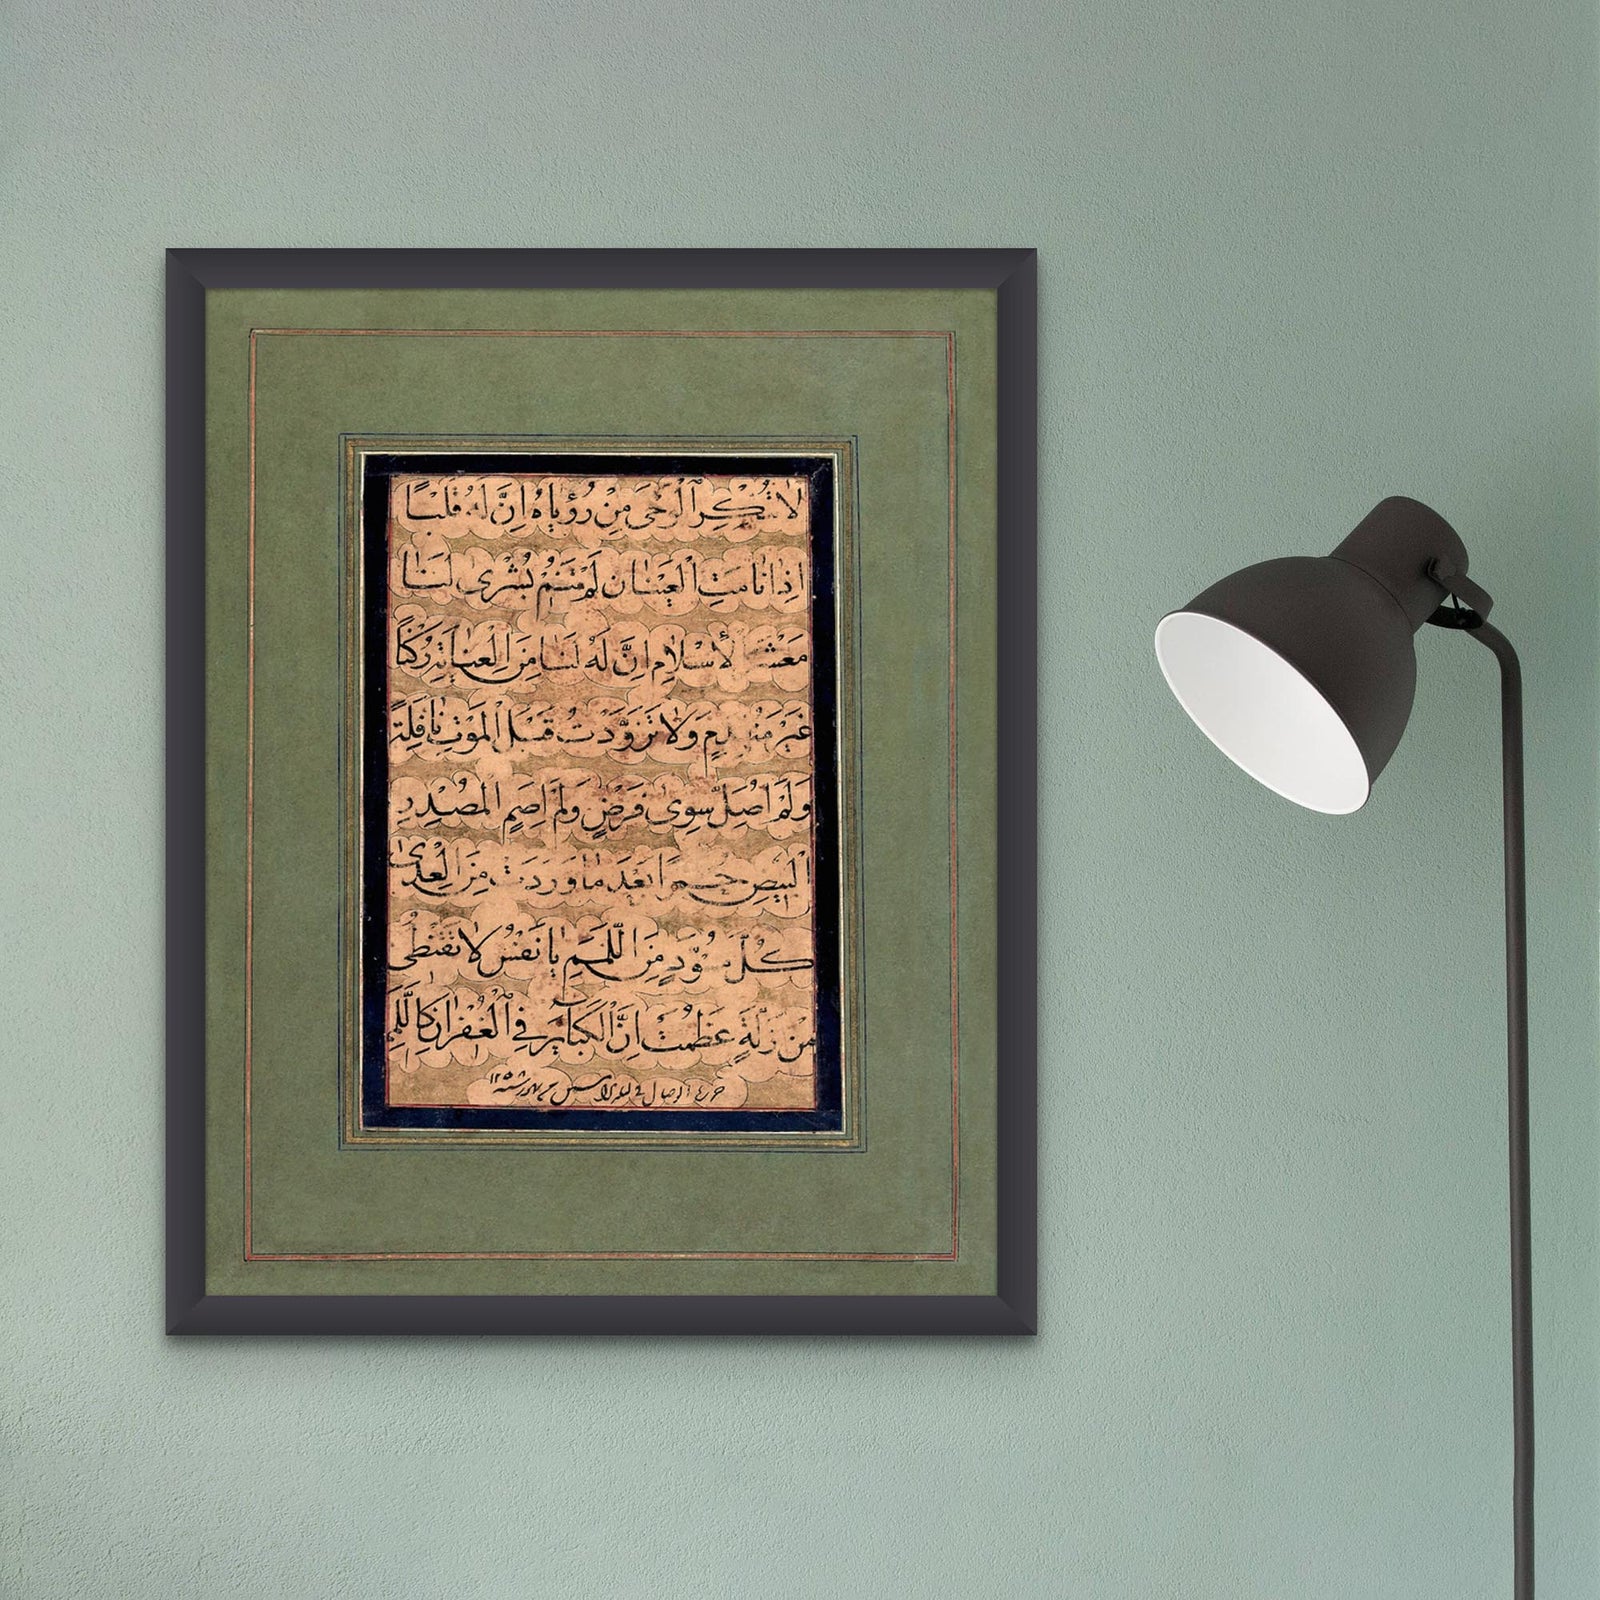 لَا تُنْكِرِ الْوَحْيَ مِنْ رُؤْيَاهُ إِنَّ لَهُ قَلْبًا
إِذَا نَامَتِ الْعَيْنَانِ لَمْ يَنَمْ بُشْرَى لَنَا
مَعْشَرَ الْأِسْلَامِ إِنَّ لَهُ لَنَا مِنَ الْعِنَايَةِ رُكْنًا
غَيْرَ مُنْهَدِمٍ وَلَا تَزَوَّدْتُ قَبْلَ الْمَوْتِ نَافِلَةً
وَلَمْ أُصَلِّ سِوَى فَرْضٍ وَلَمْ أَصُمِ الْمُصْدِرِ
الْبِيضِ حُمْرًا بَعْدَ مَا وَرَدَتْ مِنَ الْعِدَى
كُلَّ مُسْوَدٍّ مِنَ اللِّمَمِ يَا نَفْسُ لَا تَقْنَطِى
مِنْ زَلَّةٍ عَظُمَتْ إِنَّ الْكَبَائِرَ فِي الْغُفْرَانِ كَاللَّمَمِ